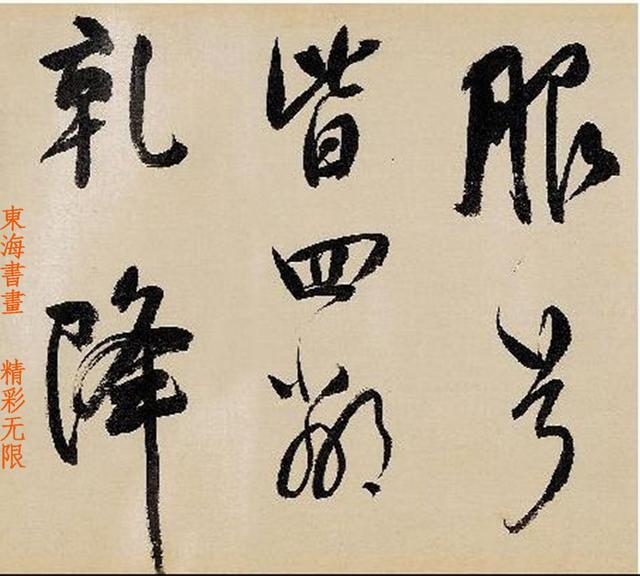 服
皆四
降
東海書畫 精彩无限